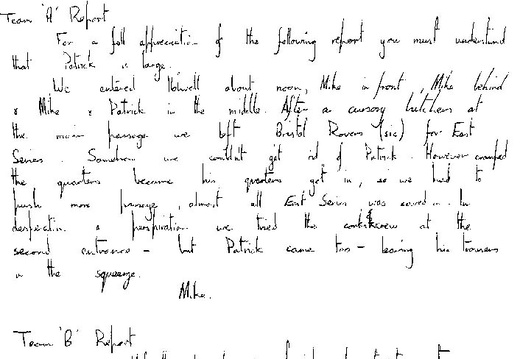 Team 'A' Report
For a full appreciation of the following report you must understand
that Patrick is large.
We entered Holwell about noon, Mike in front, Mike behind
& Mike & Patrick in the middle. After a cursory at
the main passage we left Bristol Rovers (sic) for East
Series. Somehow we couldn't get rid of Patrick. However cramped
the quarters became his quarters get in, so we had to
push more passage, almost all East Series was covered. In
desperation & perspiration we tried the corkscrew at the
second entrance - but Patrick came too - leaving his trousers
in the squeeze.
Mike.
Team 'B' Report